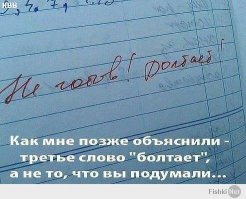 КВВ
Не готов! Болтает!
Как мне позже объяснили -
третье слово "болтает",
а не то, что вы подумали...
Fishki.Net